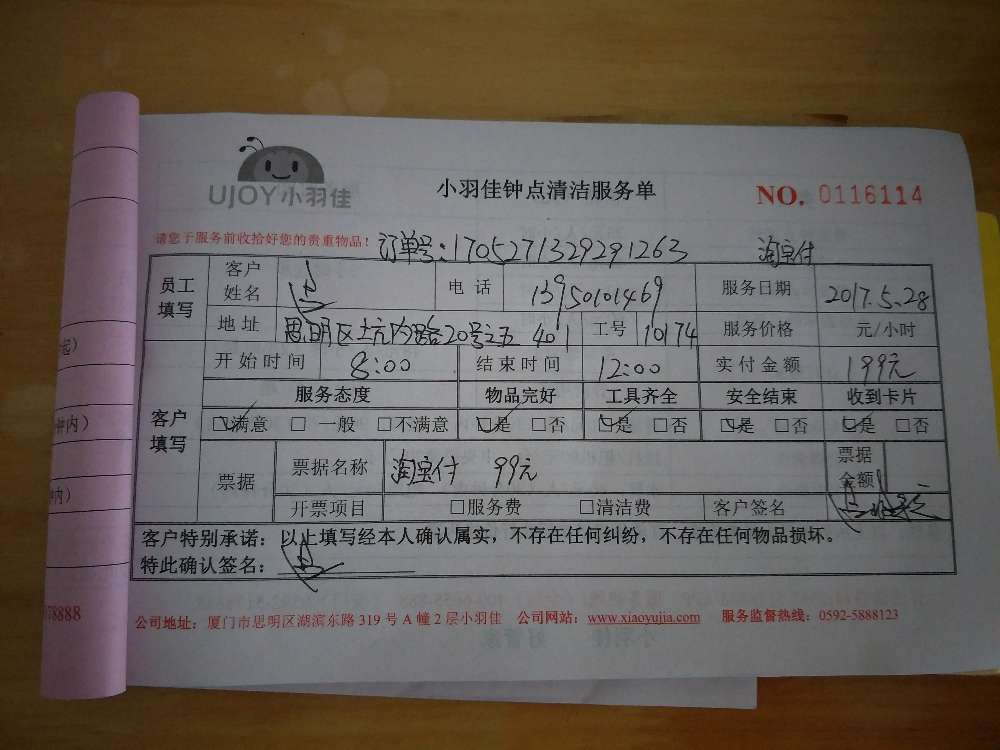 UJOY小羽佳
小羽佳钟点清洁服务单
NO. 0116114
请您于服务前收拾好您的贵重物品！ 订单号：1705271329291263 淘宝付
员工填写 客户姓名 电话 13950101469 服务日期 2017.5.28
地址 思明区土坑内路20号之五 401 工号 10174 服务价格 元/小时
客户填写 开始时间 8:00 结束时间 12:00 实付金额 199元
服务态度 物品完好 工具齐全 安全结束 收到卡片
满意 一般 不满意 是 否 是 否 是 否 是 否
票据 票据名称 淘宝付 99元 票据金额
开票项目 服务费 清洁费 客户签名
客户特别承诺：以上填写经本人确认属实，不存在任何纠纷，不存在任何物品损坏。
特此确认签名：
公司地址：厦门市思明区湖滨东路319号A幢2层小羽佳 公司网站：www.xiaoyujia.com 服务监督热线：0592-5888123
起）
钟内）
内）
78888